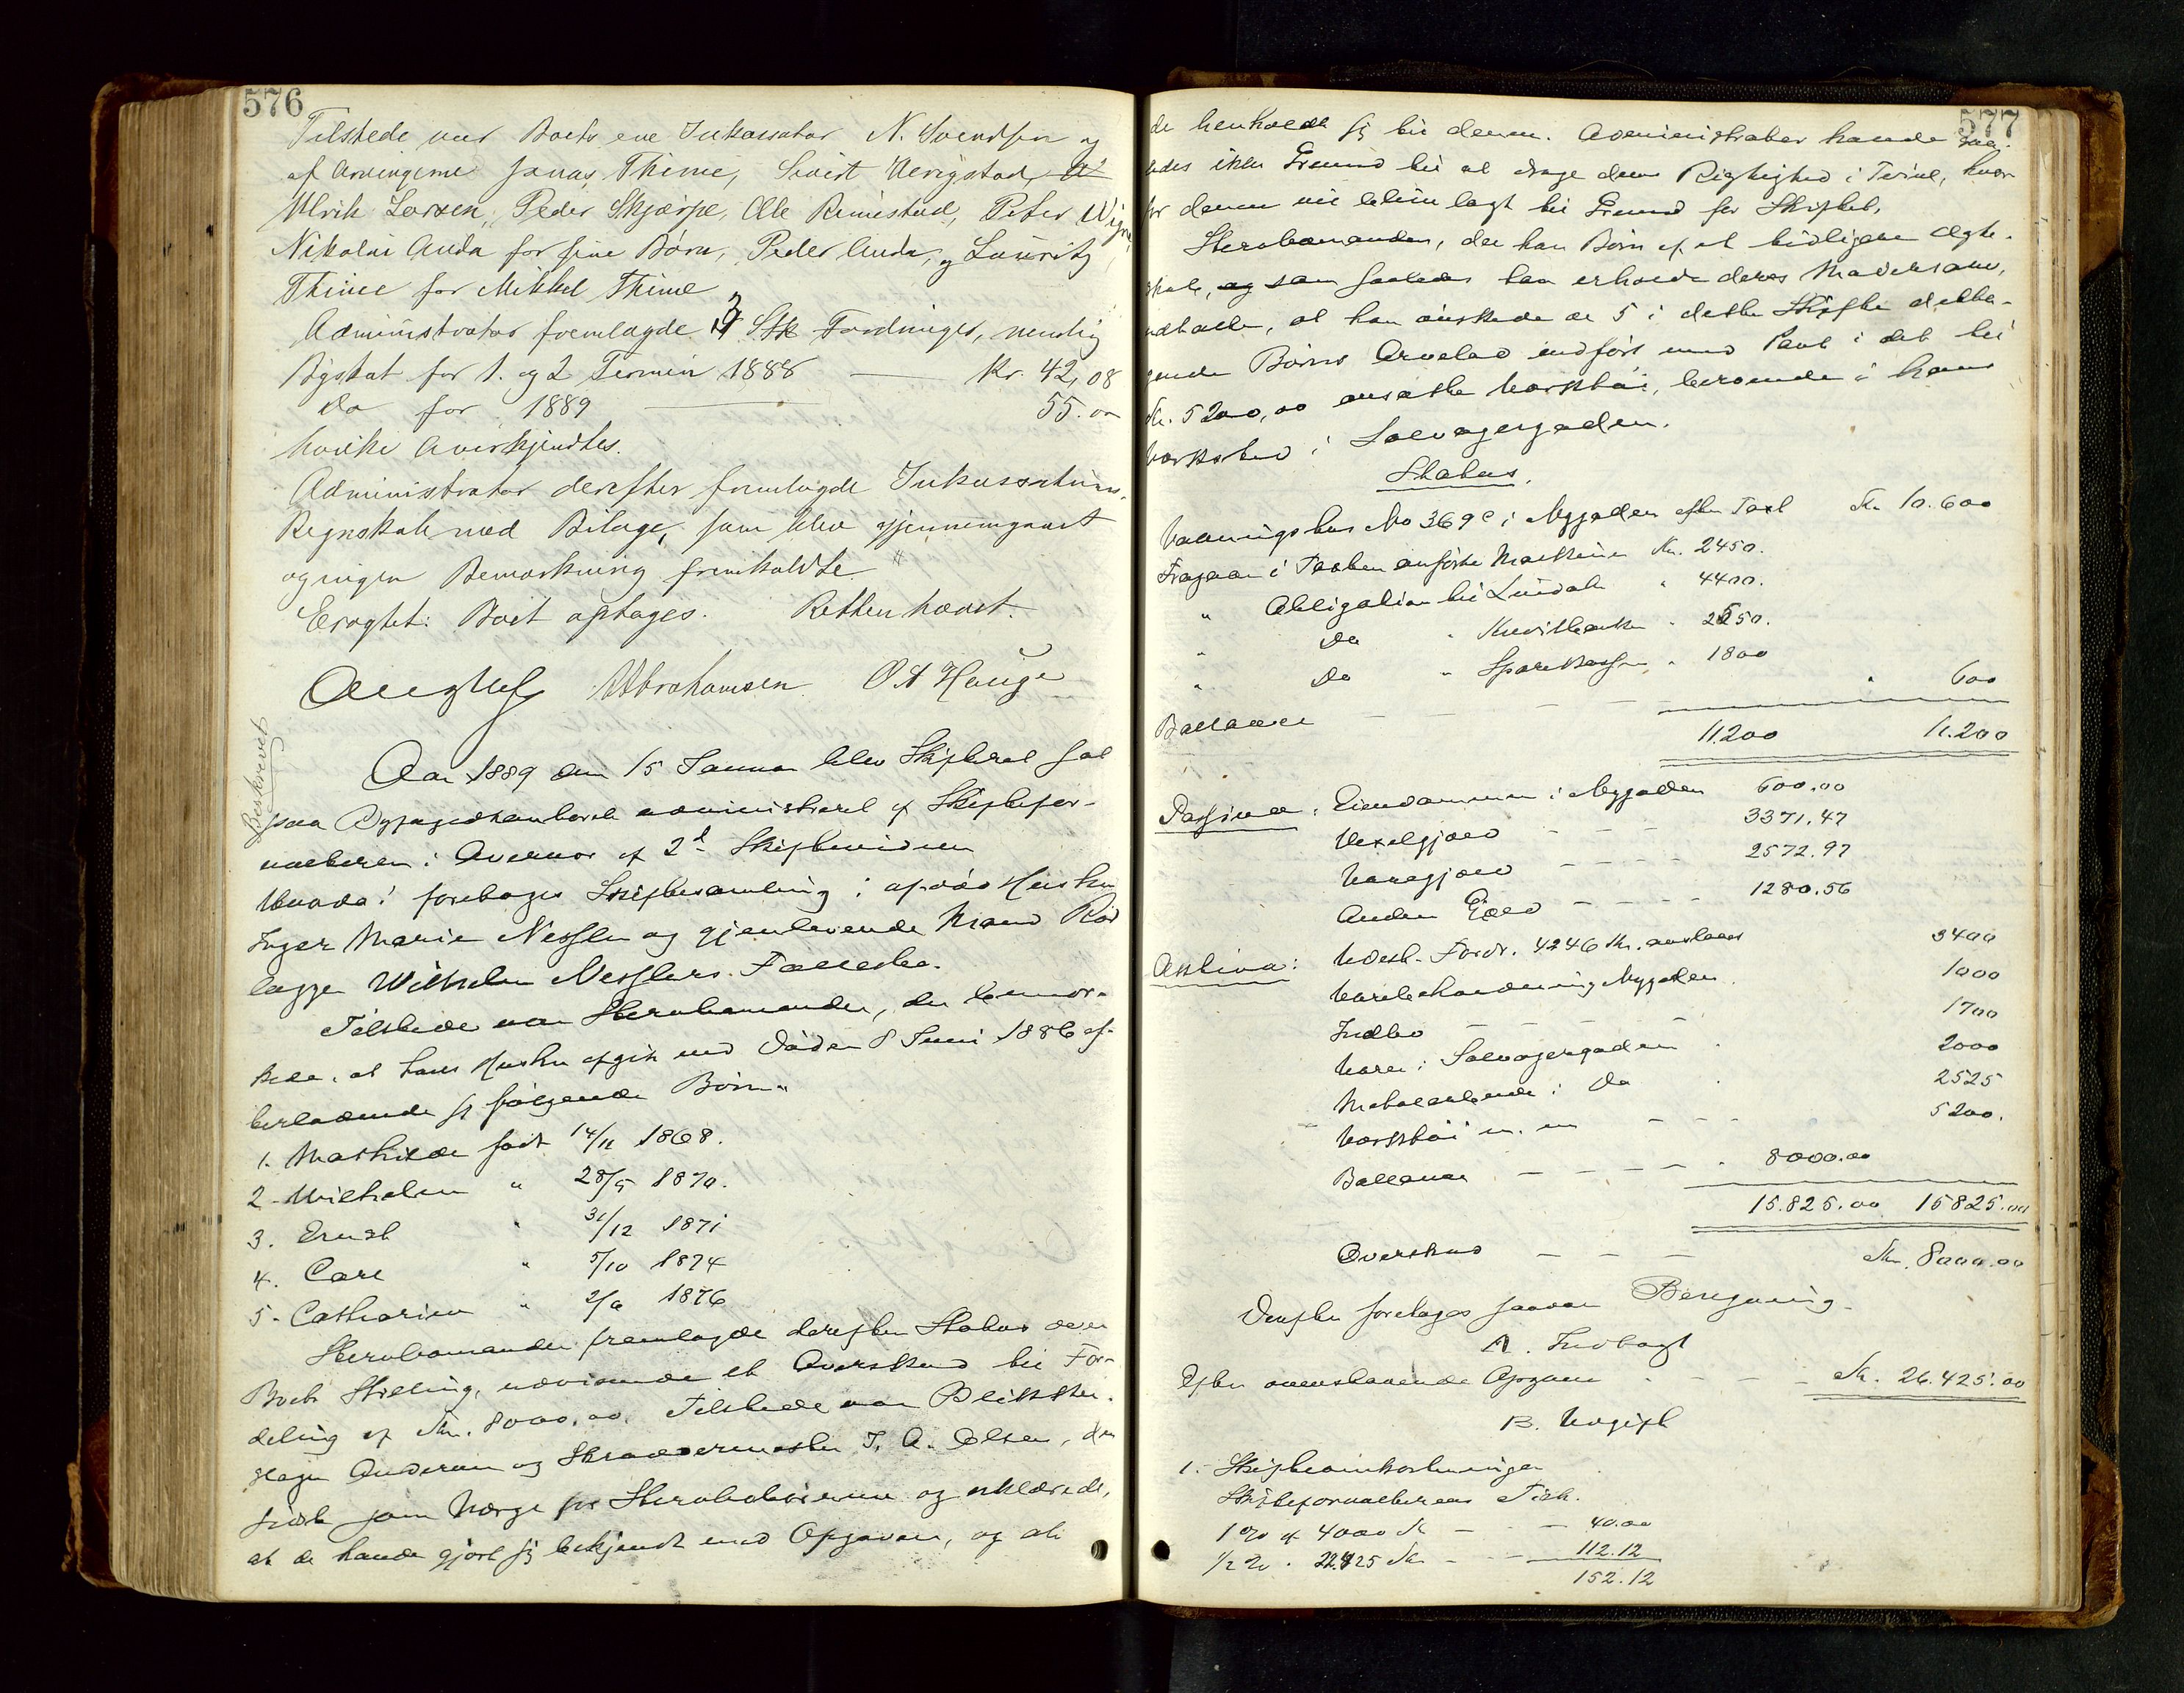 576
Tilstede var Boets ene Inkassator N. Svendsen og
af Arvingerne Jonas Thime, Sivert Uerigstad,
Ulrik Larsen, Peder Skjærpe, Ole Rimestad, Peter Wigre
Nikolai Anda for sine Børn, Peder Anda, og Lauritz
Thime for Mikkel Thime
Administrator fremlagde 3 Stk Fordringer, nemlig
Byskat for 1. og 2 Termin 1888 — Kr. 42,08
do for 1889 — 55.00
hvilke Anerkjendtes.
Administrator derefter fremlagde Inkassations-
Regnskab med Bilage, som blev gjennemgaaet
og ingen Bemærkning fremkaldte
Eragtet: Boet optages. Retten hævet.
Abrahamsen O. A Hauge
Beskrevet
Aar 1889 den 15 Januar blev Skifteret sat
paa Byfogedkontoret administreret af Skiftefor-
valteren i Overvær af 2de Skiftevidner
Hvorda: foretoges Skiftesamling i afdøde Hustru
Inger Marie Nessler og gjenlevende Mand Rør
lægger Wilhelm Nesslers Fællesbo.
Tilstede var Sterbomanden, der bemær-
kede, at hans Hustru afgik ved Døden 8 Juni 1886 ef-
terladende sig følgende Børn:
1. Mathilde født 14/11 1868.
2. Wilhelm " 28/5 1870.
3. Ernst " 31/12 1871
4. Carl " 5/10 1874
5. Catharine " 2/9 1876
Sterbomanden fremlagde derefter Status over
Boets Stilling, udvisende et Overskud til For-
deling af Kr. 8000.00. Tilstede var Blikken-
slager Andersen og Skræddermester T. A. Olsen, den
sidste som Værge for Sterbobørnene og erklærede,
at de havde gjort sig bekjendt med Opgaven, og at
577
de henholdt sig til denne. Administrator havde saa-
ledes ikke Grund til at drage dens Rigtighed i Tvivl, hvor-
for denne vil blive lagt til Grund for Skiftet.
Sterbomanden, der har Børn af et tidligere Ægte-
skab, som saaledes har erholdt deres Mødrearv,
udtalte, at han ønskede de 5 i dette Skifte delta-
gende Børns Arvelod indført med Pant i det til
Kr. 5200,00 ansatte Værktøi, beroende i hans
Værksted i Solvagergaden.
Status.
Vaaningshus No 369c i Nygaden efter Taxt Kr. 10.600
Fragaar i Taxten anførte Maskiner Kr. 2450.
" Obligation til Lindahl " 4400.
" Do " Kreditbanken " 2550.
" Do " Sparekassen " 1800
Ballance — — — — " 600
11200 11.200
Passiva: Eiendommen i Nygaden 600.00
Vexelgjæld — — — 3371.47
Varegjæld — — — 2572.97
Anden Gjæld — — — 1280.56
Aktiva: Udest. Fordr. 4246 Kr. anslaaes 3400
Varebeholdning Nygaden 1000
Indbo — — — 1700
Varer i Solvagergaden 2000
Materialende i Do 2525
Værktøi m. m — — — 5200.
Ballance — — — — 8000.00
15.825.00 15825.00
Overskud — — — Kr. 8000.00
Derefter foretoges saadan Beregning.
A. Indtægt
Efter ovenstaaende Opgave — — — Kr. 26.425.00
B. Udgift
1. Skifteomkostninger
Skifteforvalterens Tilk.
1 % af 4000 Kr — — 40.00
1/2 % " 22425 Kr — — 112.12
152.12